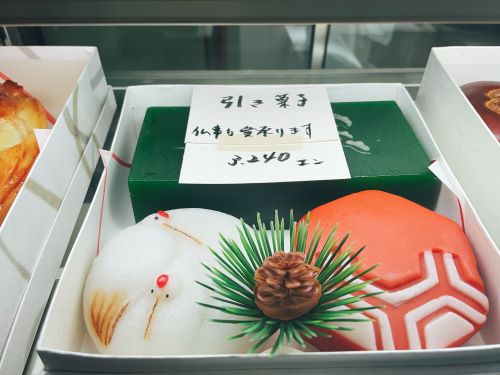 引き菓子
仏事も堂承ります
3.240 エン